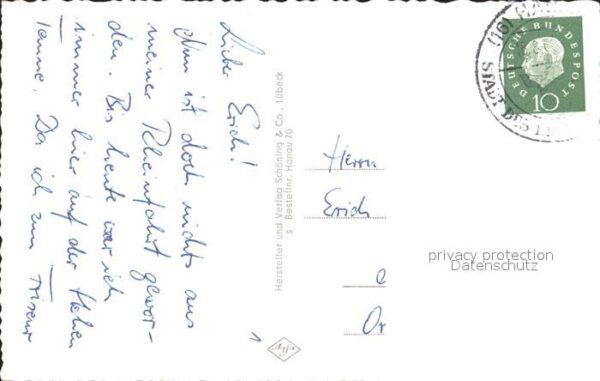 Lieber Erich!
Nun ist doch nichts aus
meiner Rheinfahrt gewor-
den. Bis heute war ich
immer hier auf der Hohen
Tanne. Da ich zum Friseur
Hersteller und Verlag Schöning & Co., Lübeck
S Bestellnr. Hanau 70
Agfa
1
Herrn
Erich
e
Or
(16)
STADT DES
DEUTSCHE BUNDESPOST
10
privacy protection
Datenschutz